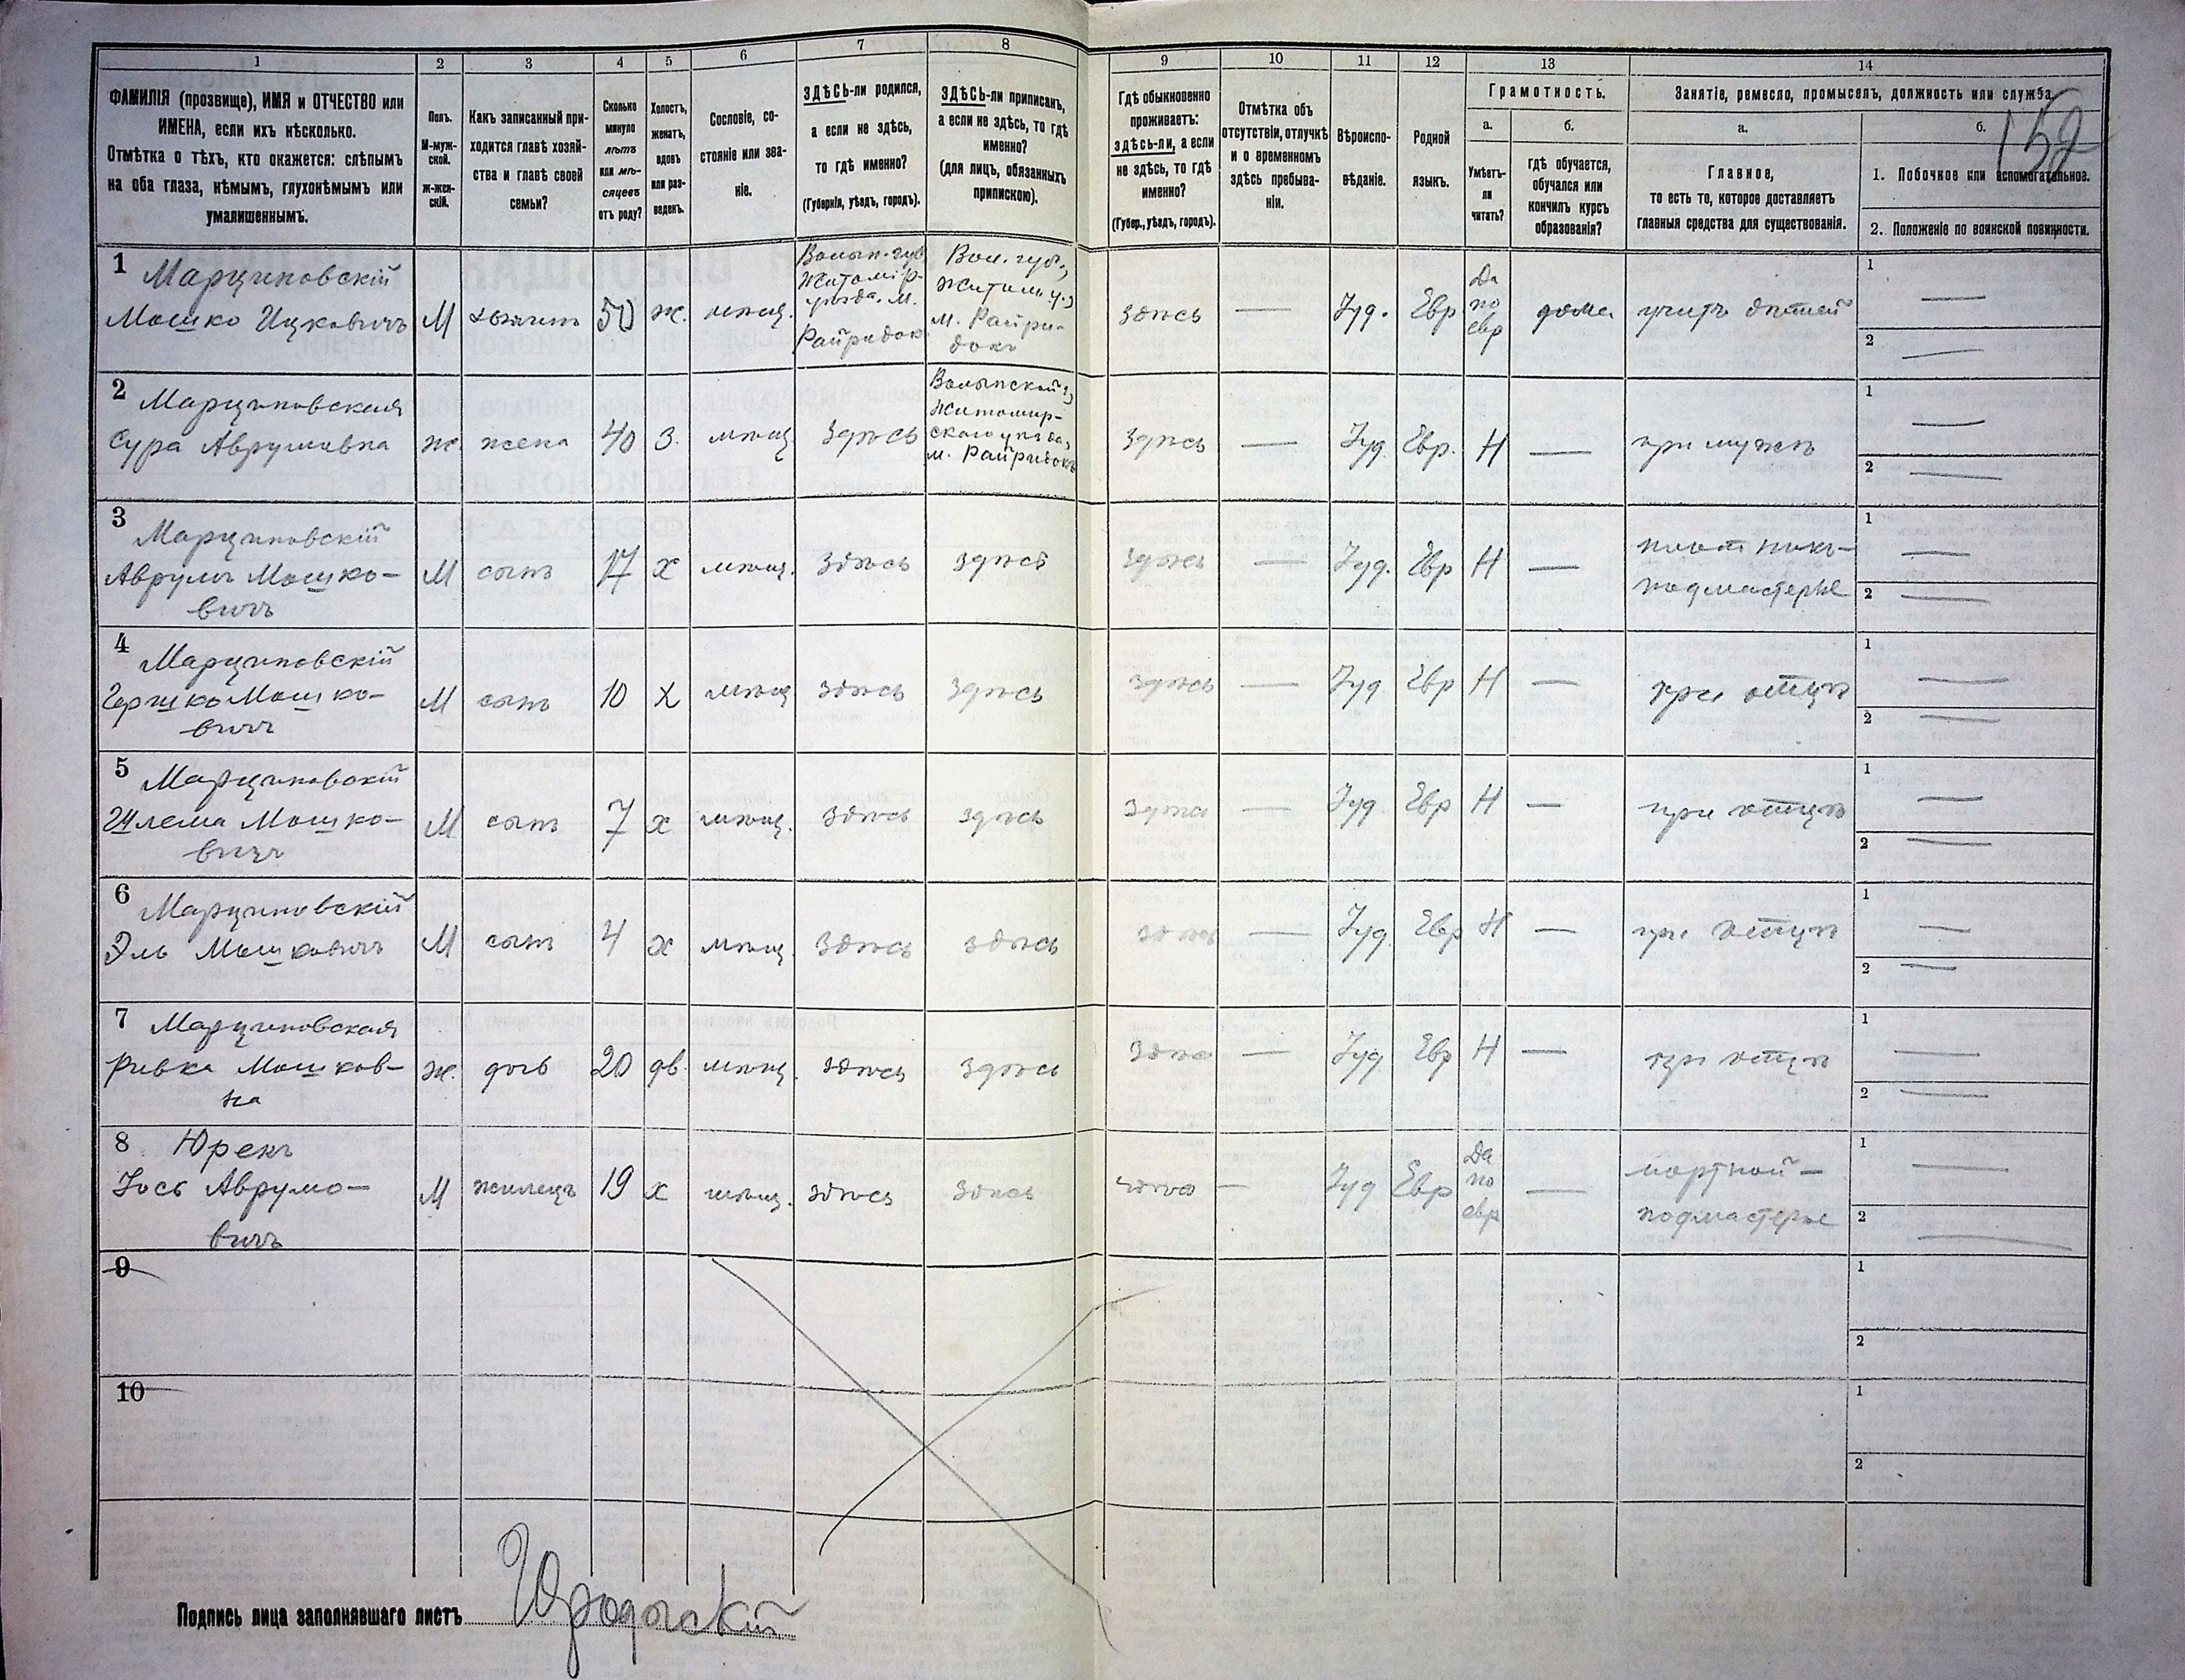 1
2
3
4
5
6
7
8
9
10
11
12
13
14
ФАМИЛІЯ (прозвище), ИМЯ и ОТЧЕСТВО или
ИМЕНА, если ихъ нѣсколько.
Отмѣтка о тѣхъ, кто окажется: слѣпымъ
на оба глаза, нѣмымъ, глухонѣмымъ или
умалишеннымъ.
Полъ.
М-муж-
ской.
ж-жен-
скій.
Какъ записанный при-
ходится главѣ хозяй-
ства и главѣ своей
семьи?
Сколько
минуло
лѣтъ
или мѣ-
сяцевъ
отъ роду?
Холостъ,
женатъ,
вдовъ
или раз-
веденъ.
Сословіе, со-
стояніе или зва-
ніе.
ЗДѢСЬ-ли родился,
а если не здѣсь,
то гдѣ именно?
(Губернія, уѣздъ, городъ).
ЗДѢСЬ-ли приписанъ,
а если не здѣсь, то гдѣ
именно?
(для лицъ, обязанныхъ
припискою).
Гдѣ обыкновенно
проживаетъ:
здѣсь-ли, а если
не здѣсь, то гдѣ
именно?
(Губер., уѣздъ, городъ).
Отмѣтка объ
отсутствіи, отлучкѣ
и о временномъ
здѣсь пребыва-
ніи.
Вѣроиспо-
вѣданіе.
Родной
языкъ.
Грамотность.
а.
Умѣетъ-
ли
читать?
б.
гдѣ обучается,
обучался или
кончилъ курсъ
образованія?
Занятіе, ремесло, промыселъ, должность или служба.
а.
Главное,
то есть то, которое доставляетъ
главныя средства для существованія.
б.
152
1. Побочное или вспомогательное.
2. Положеніе по воинской повинности.
1 Марциновскій
Мошко Ицковичъ
М
хозяинъ
50
ж.
мѣщ.
Волын. губ
Житомір.
уѣзда. м.
Райгродок
Вол. губ.,
Житом. у.,
м. Райгро-
докъ
здѣсь
—
Іуд.
Евр
Да
по
евр
дома
учитъ дѣтей
1 —
2 —
2 Марциновская
Сура Аврумовна
ж.
жена
40
з.
мѣщ
здѣсь
Волынской г,
Житомир-
скаго уѣзда,
м. Райгродокъ
здѣсь
—
Іуд.
Евр.
Н
—
при мужѣ
1 —
2 —
3 Марциновскій
Аврумъ Мошко-
вичъ
М
сынъ
17
х
мѣщ.
здѣсь
здѣсь
здѣсь
—
Іуд.
Евр
Н
—
плотникъ-
подмастерье
1 —
2 —
4 Марциновскій
Гершко Мошко-
вичъ
М
сынъ
10
х
мѣщ
здѣсь
здѣсь
здѣсь
—
Іуд.
Евр
Н
—
при отцѣ
1 —
2 —
5 Марциновскій
Шлема Мошко-
вичъ
М
сынъ
7
х
мѣщ.
здѣсь
здѣсь
здѣсь
—
Іуд.
Евр
Н
—
при отцѣ
1 —
2 —
6 Марциновскій
Эль Мошковичъ
М
сынъ
4
х
мѣщ.
здѣсь
здѣсь
здѣсь
—
Іуд.
Евр
Н
—
при отцѣ
1 —
2 —
7 Марциновская
Ривка Мошков-
на
ж.
дочь
20
дв.
мѣщ.
здѣсь
здѣсь
здѣсь
—
Іуд
Евр
Н
—
при отцѣ
1 —
2 —
8 Юрекъ
Іось Аврумо-
вичъ
М
жилецъ
19
х
мѣщ.
здѣсь
здѣсь
здѣсь
—
Іуд
Евр
Да
по
евр
—
портной-
подмастерье
1 —
2 —
9
1
2
10
1
2
Подпись лица заполнявшаго листъ